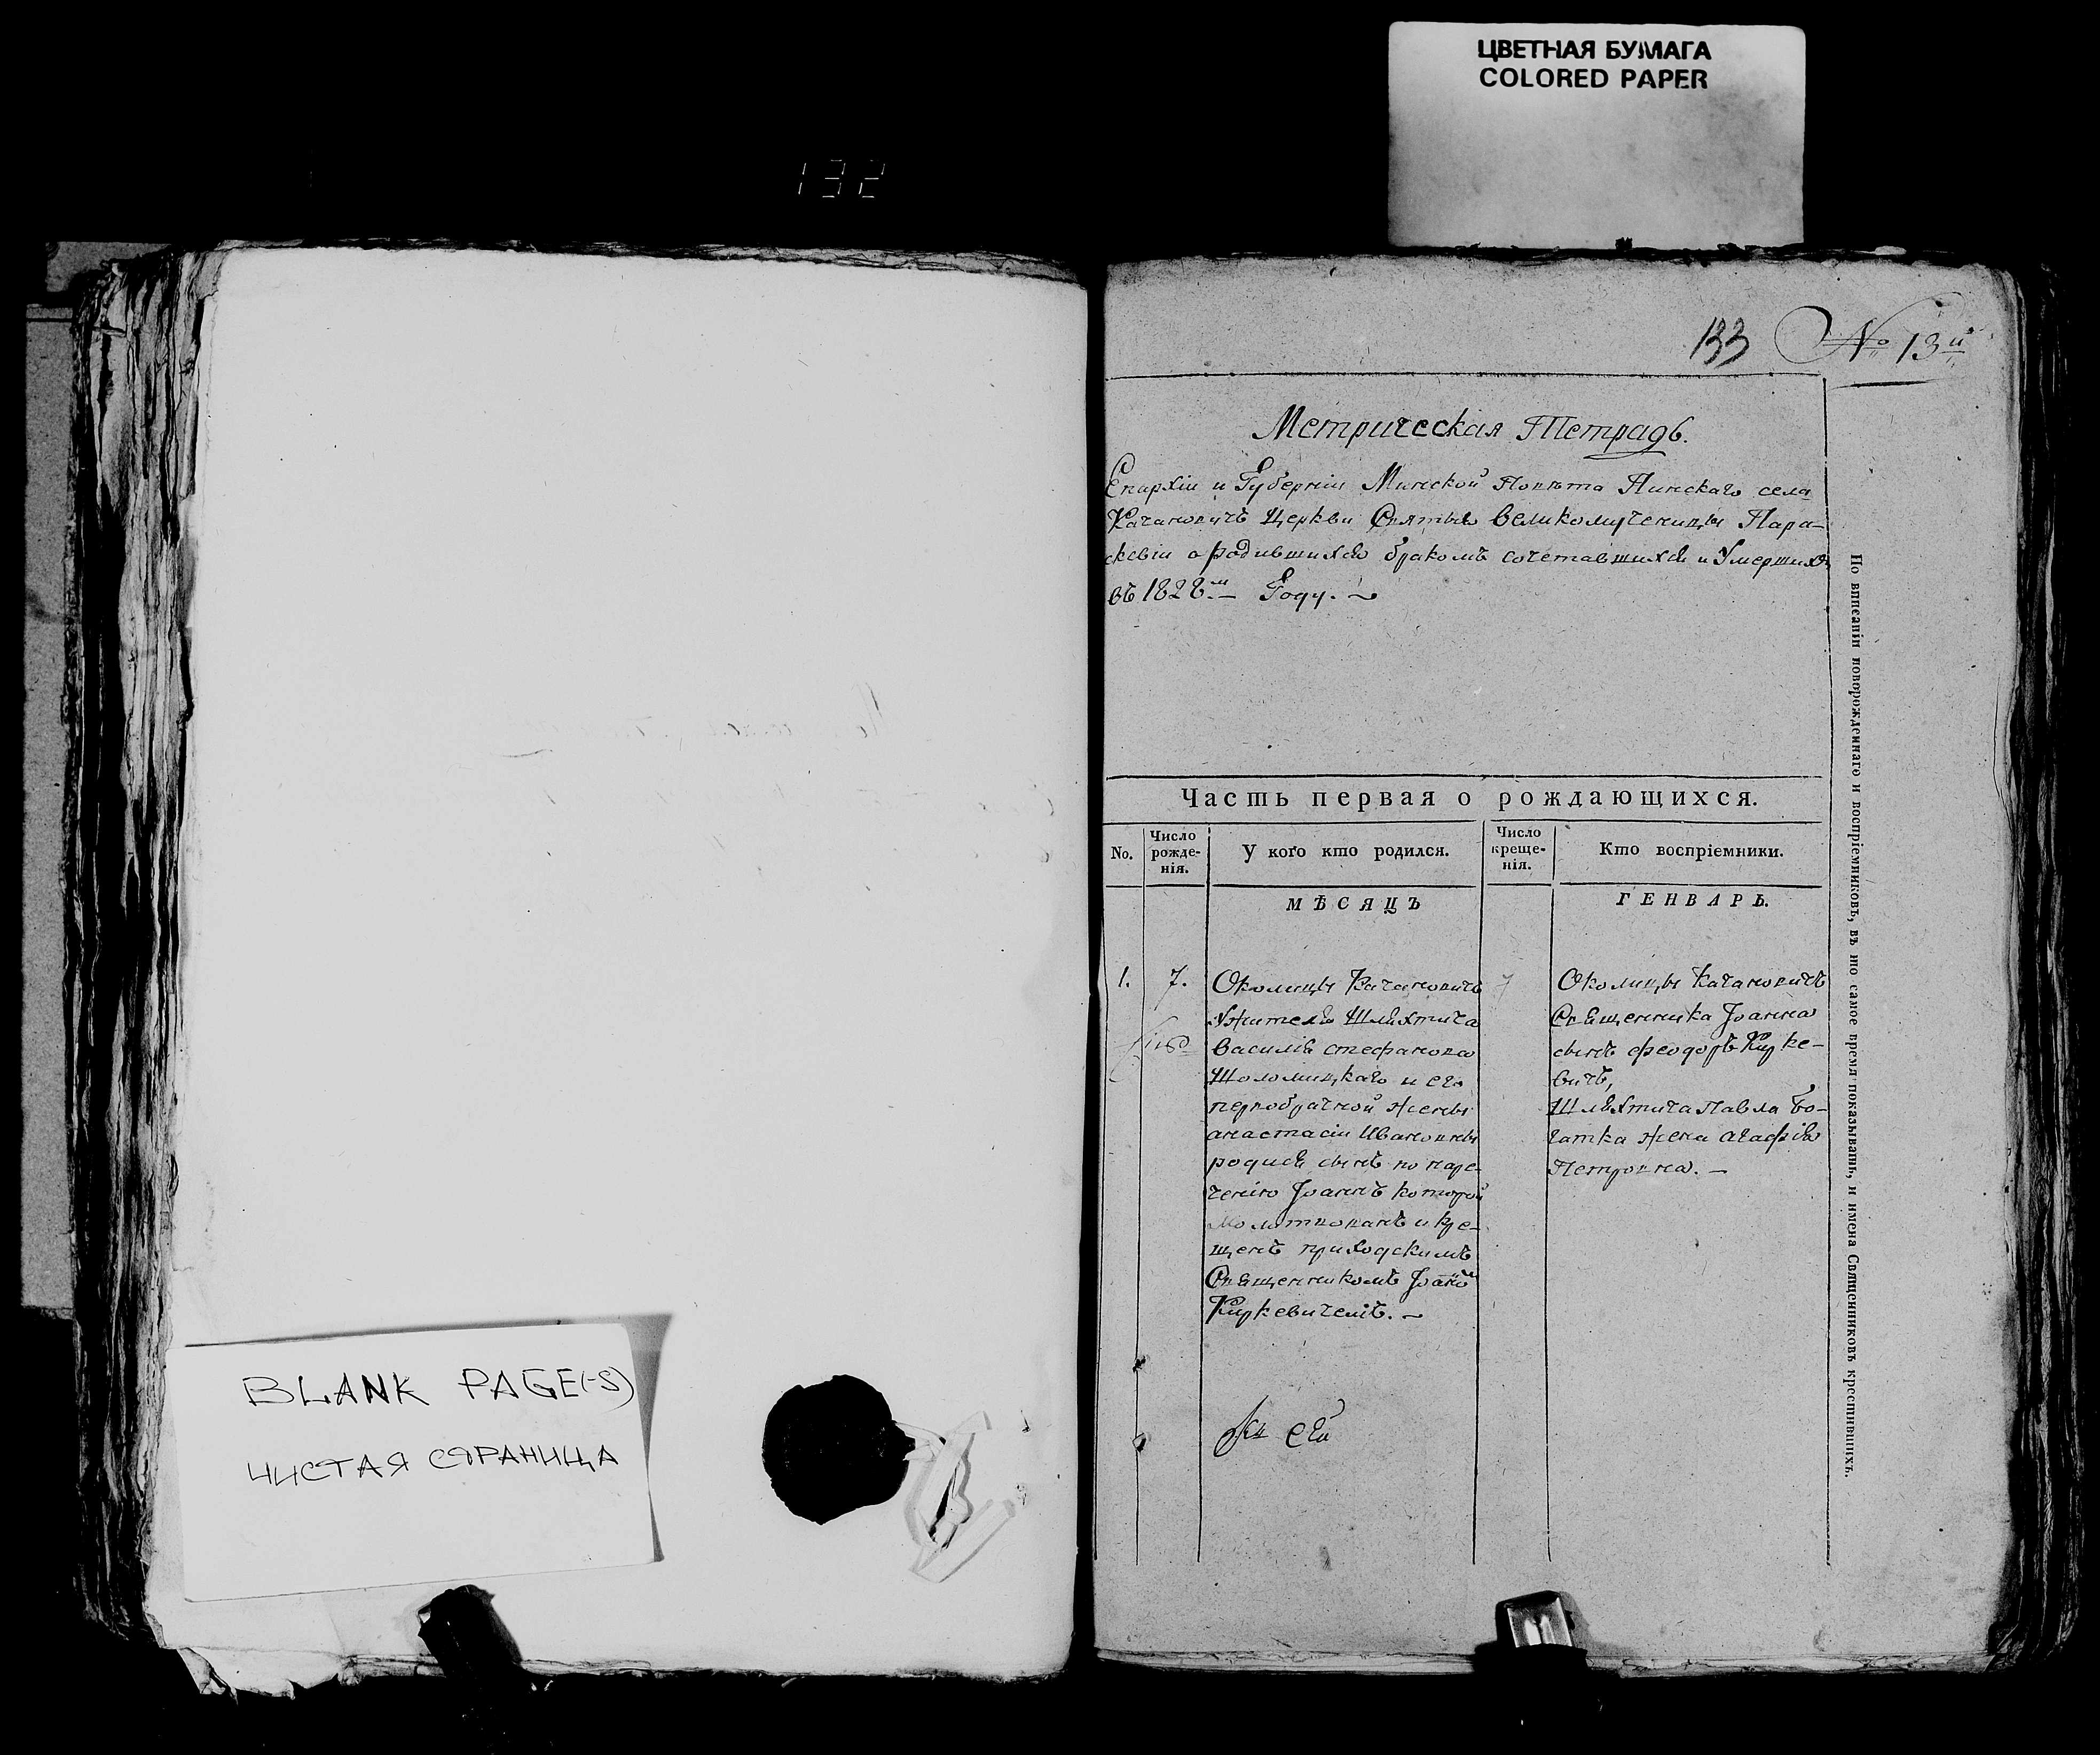 ЦВЕТНАЯ БУМАГА
COLORED PAPER
132
133 № 13й
Метрическая Тетрадь.
Епархіи и Губерніи Минской Повѣта Пинскаго села
Качановичъ Церкви Святыя великомученицы Пара-
скевіи о родившихся бракомъ сочетавшихся и Умершихъ
въ 1828м Году.
Часть первая о рождающихся.
No.
Число рожде-нія.
У кого кто родился.
Число креще-нія.
Кто воспріемники.
МѢСЯЦЪ
ГЕНВАРЬ.
1. 7.
Околицы Качановичъ
Жителя Шляхтича
Василія стефанова
Шоломицкаго и его
первобрачной жены
анастасіи Ивановны
родися сынъ по наре-
ченію Іоаннъ которой
Молитвованъ и кре-
щенъ приходскимъ
Священникомъ Іоан
Киркевичемъ.
7
Околицы Качановичъ
Священника Іоанна
сынъ феодоръ Кирке-
вичъ,
Шляхтича Павла Бо-
гатка жена агафія
Петровна.
По вписаніи новорожденнаго и воспріемниковъ, въ то самое время показывать, и имена Священниковъ крестившихъ.
BLANK PAGE(-S)
ЧИСТАЯ СТРАНИЦА